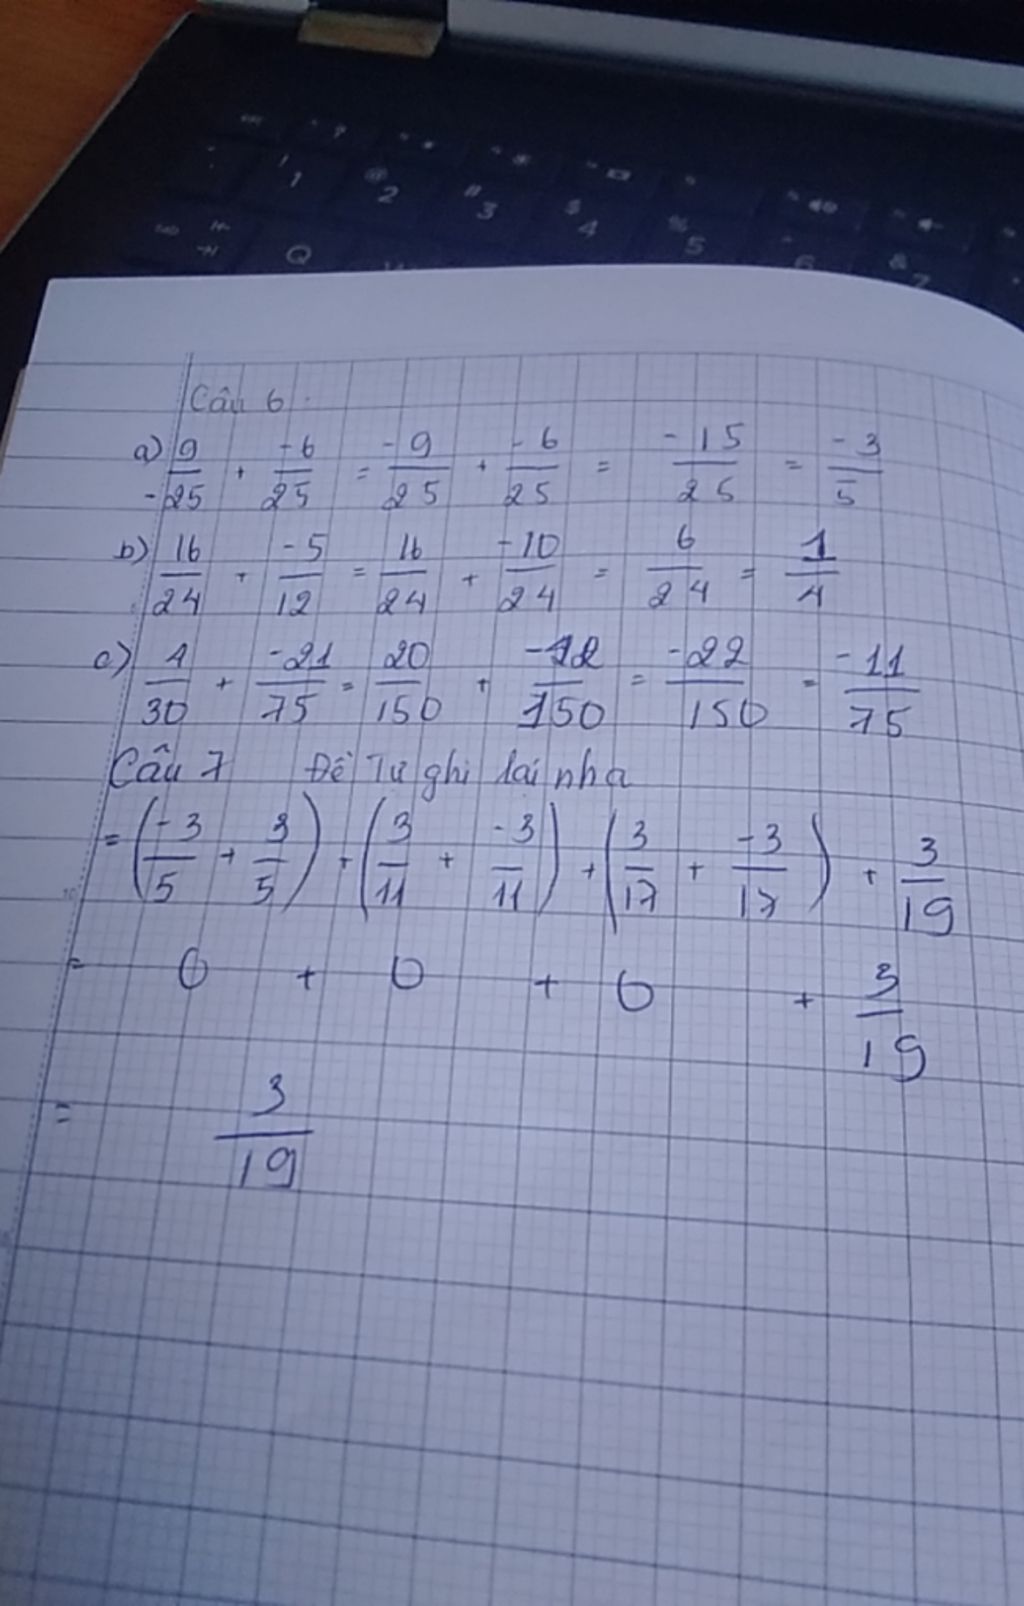 ! 1 @ 2 # 3 $ 4 % 5 6 & 7
Q
Câu 6.
a) 9/-25 + -6/25 = -9/25 + -6/25 = -15/25 = -3/5
b) 16/24 + -5/12 = 16/24 + -10/24 = 6/24 = 1/4
c) 4/30 + -21/75 = 20/150 + -42/150 = -22/150 = -11/75
Câu 7 Đề Tự ghi lại nha
= (-3/5 + 3/5) + (3/11 + -3/11) + (3/17 + -3/17) + 3/19
= 0 + 0 + 0 + 3/19
= 3/19